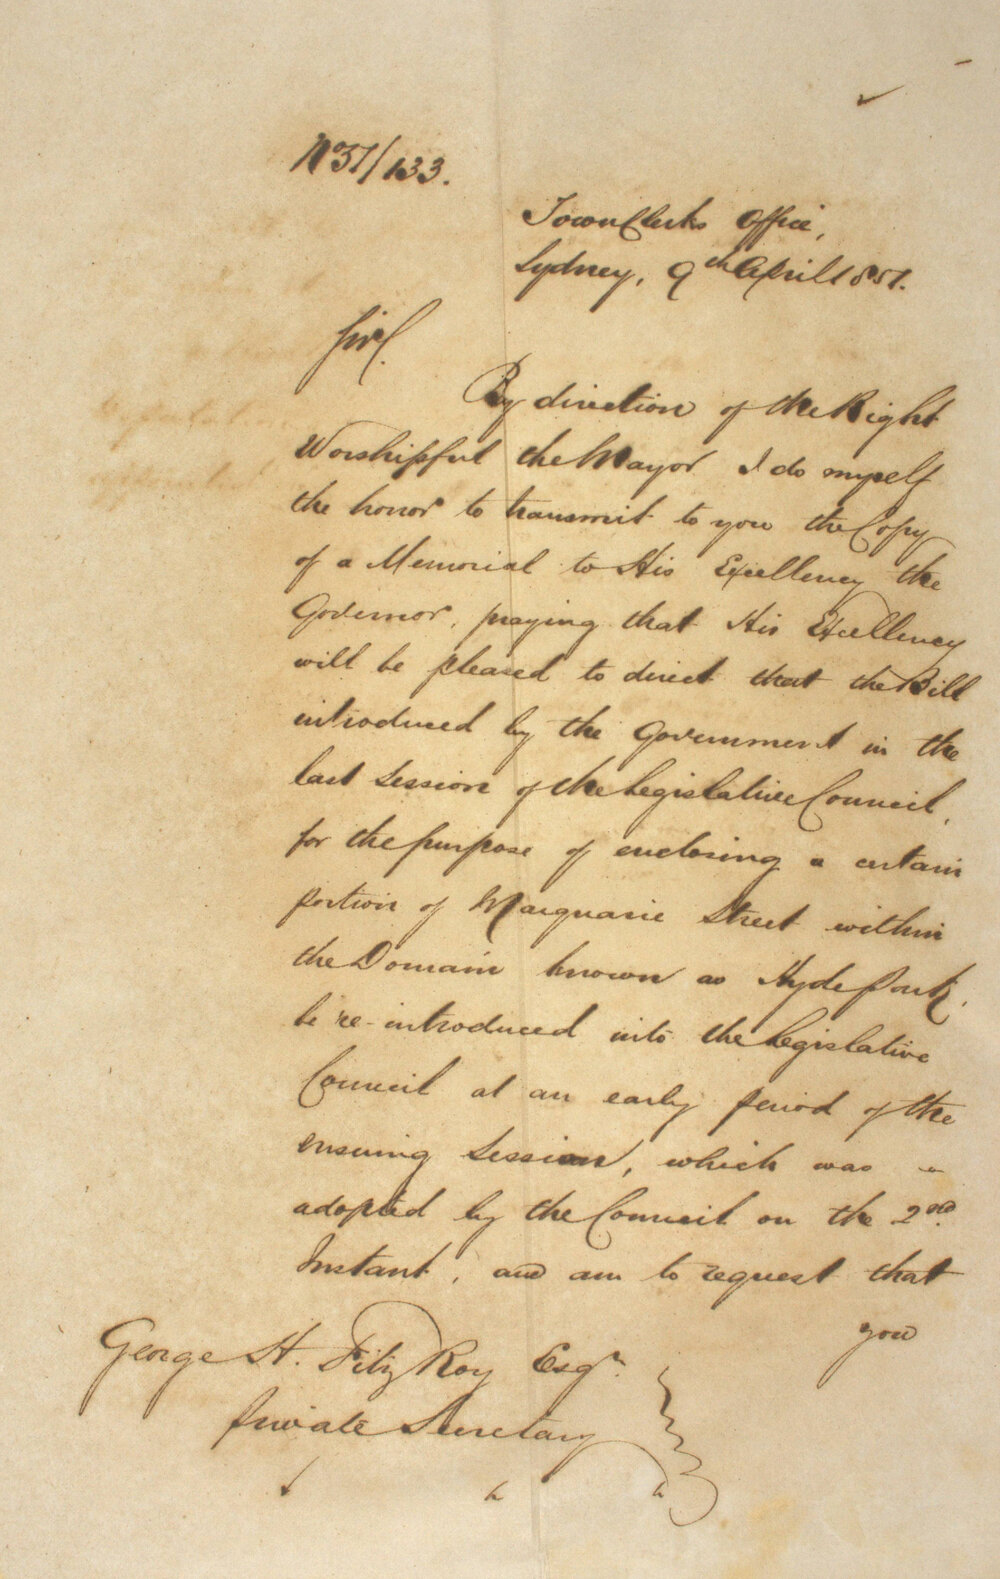 No 51/133.
Town Clerks Office,
Sydney, 9th April 1851.
Sir,
By direction of the Right
Worshipful the Mayor I do myself
the honor to transmit to you the Copy
of a Memorial to His Excellency the
Governor, praying that His Excellency
will be pleased to direct that the Bill
introduced by the Government in the
last Session of the Legislative Council,
for the purpose of enclosing a certain
portion of Macquarie Street within
the Domain known as Hyde Park,
be re-introduced into the Legislative
Council at an early period of the
ensuing Session, which was
adopted by the Council on the 2nd
Instant, and am to request that
you
George H. Fitz Roy Esqr.
Private Secretary